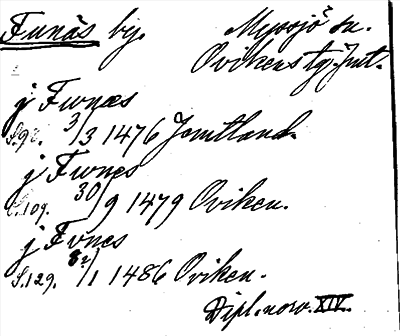 Funäs by. Myssjö sn.
Ovikens tg. Jmt.
j Fwnæs
S.92. 3/3 1476 Jemtland.
j Fwnes
S.109. 30/9 1479 Oviken.
j Fvnes
S.129. /1 1486 Oviken.
Dipl. norv. XIV.